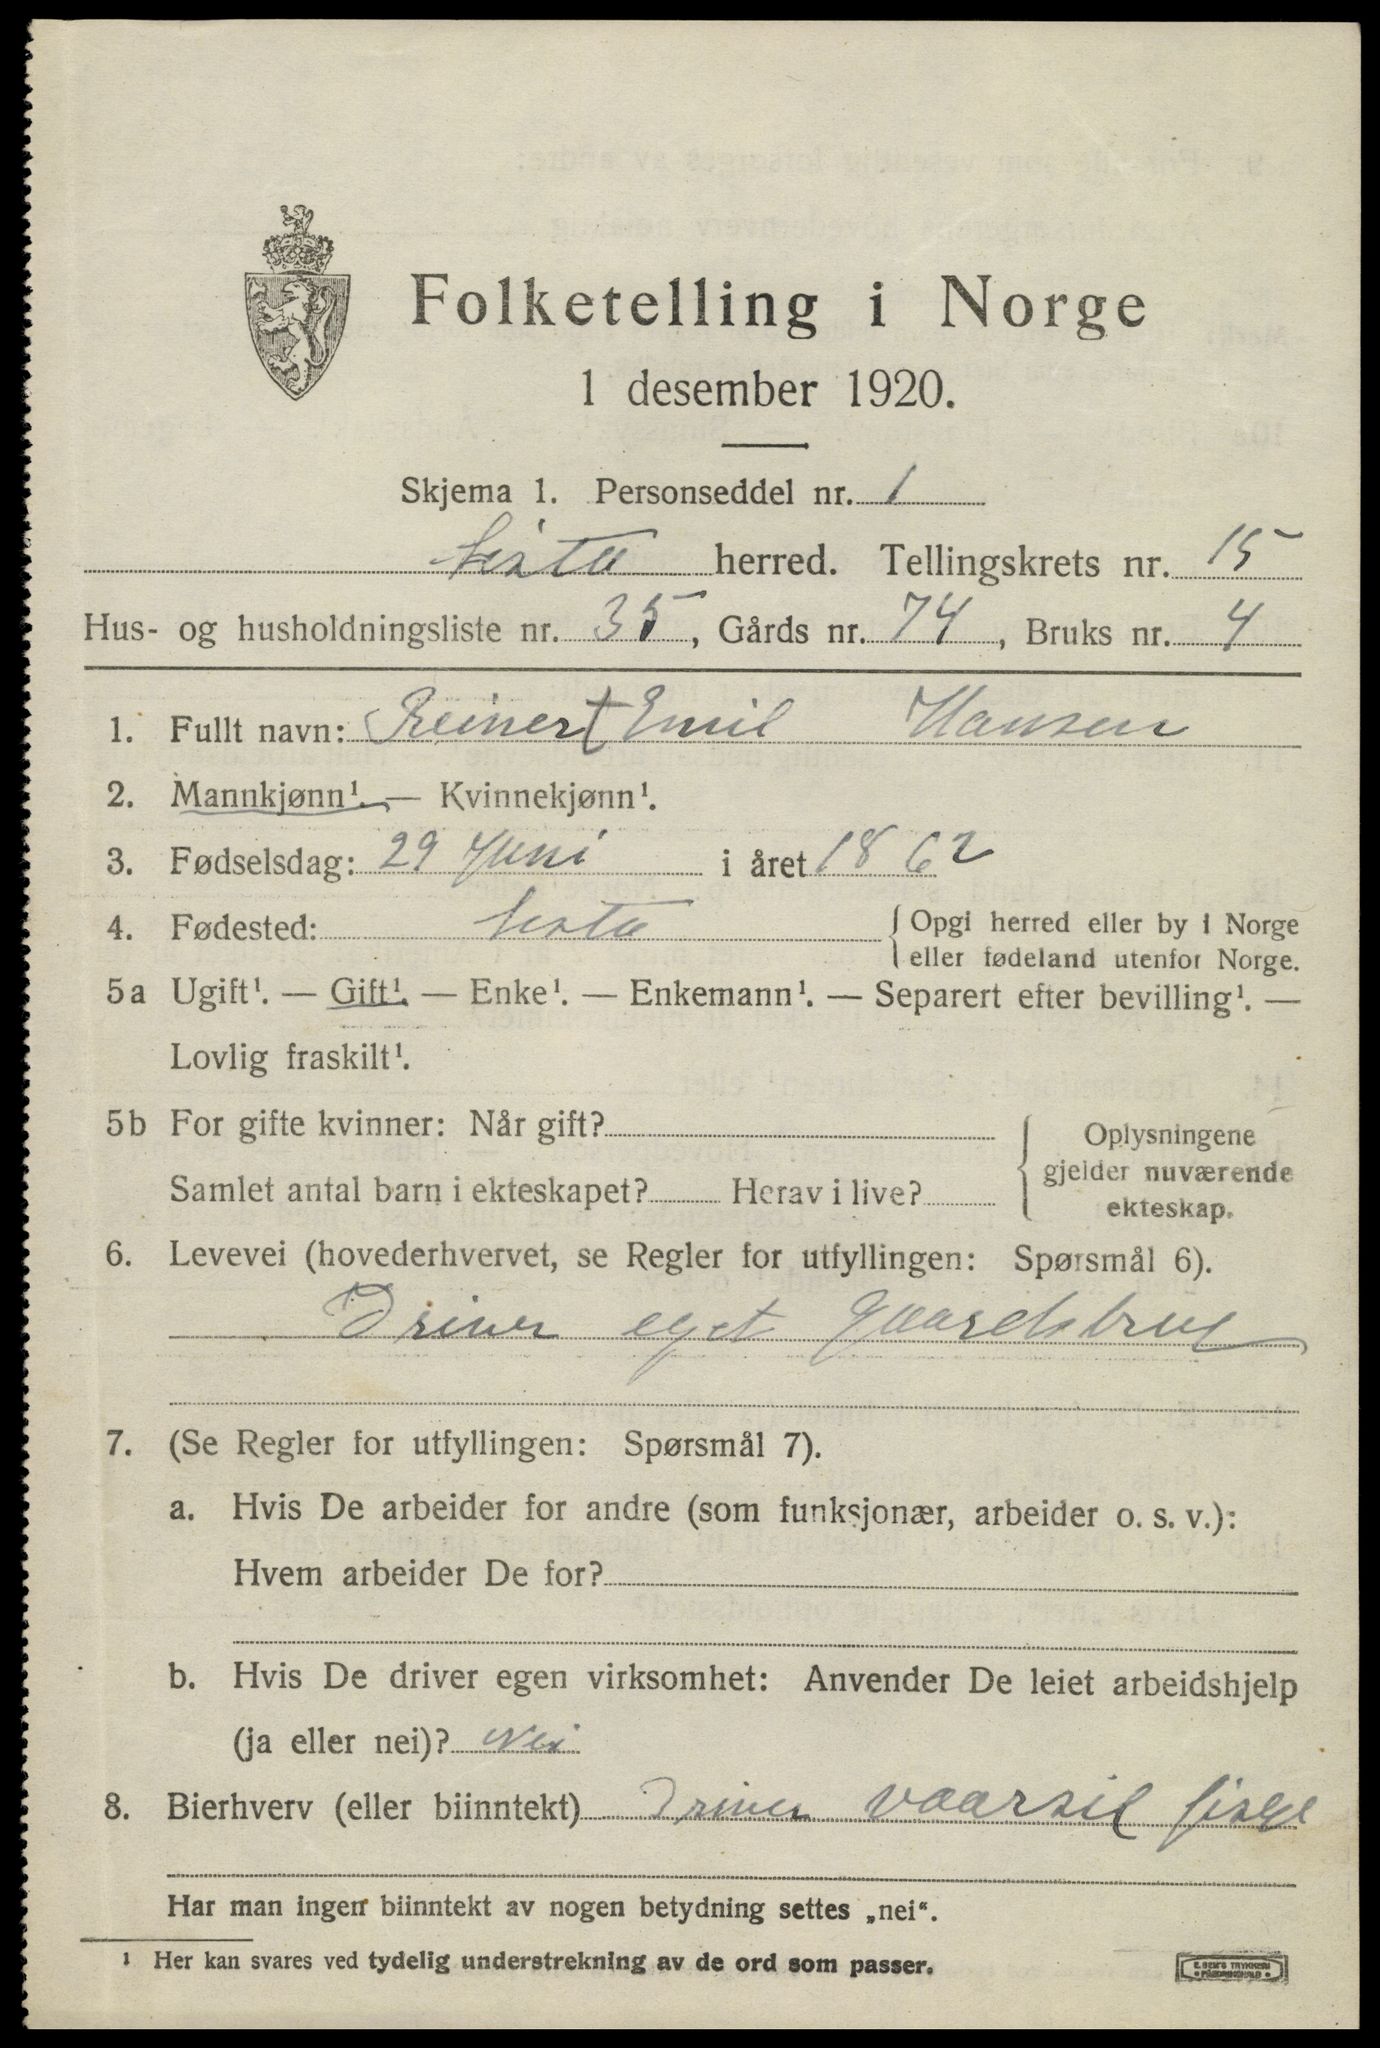 Folketelling i Norge
1 desember 1920.
Skjema 1. Personseddel nr. 1
Lista herred. Tellingskrets nr. 15
Hus- og husholdningsliste nr. 35, Gårds nr. 74, Bruks nr. 4
1. Fullt navn: Reinert Emil Hansen
2. Mannkjønn¹. — Kvinnekjønn¹.
3. Fødselsdag: 29 Juni i året 1862
4. Fødested: Lista { Opgi herred eller by i Norge
eller fødeland utenfor Norge.
5a Ugift¹. — Gift¹. — Enke¹. — Enkemann¹. — Separert efter bevilling¹. —
Lovlig fraskilt¹.
5b For gifte kvinner: Når gift?
Samlet antal barn i ekteskapet? Herav i live?
{ Oplysningene
gjelder nuværende
ekteskap.
6. Levevei (hovederhvervet, se Regler for utfyllingen: Spørsmål 6).
Driver eget Gaardsbrug
7. (Se Regler for utfyllingen: Spørsmål 7).
a. Hvis De arbeider for andre (som funksjonær, arbeider o. s. v.):
Hvem arbeider De for?
b. Hvis De driver egen virksomhet: Anvender De leiet arbeidshjelp
(ja eller nei)? Nei
8. Bierhverv (eller biinntekt) Driver vaarsil fiske
Har man ingen biinntekt av nogen betydning settes „nei“.
¹ Her kan svares ved tydelig understrekning av de ord som passer.